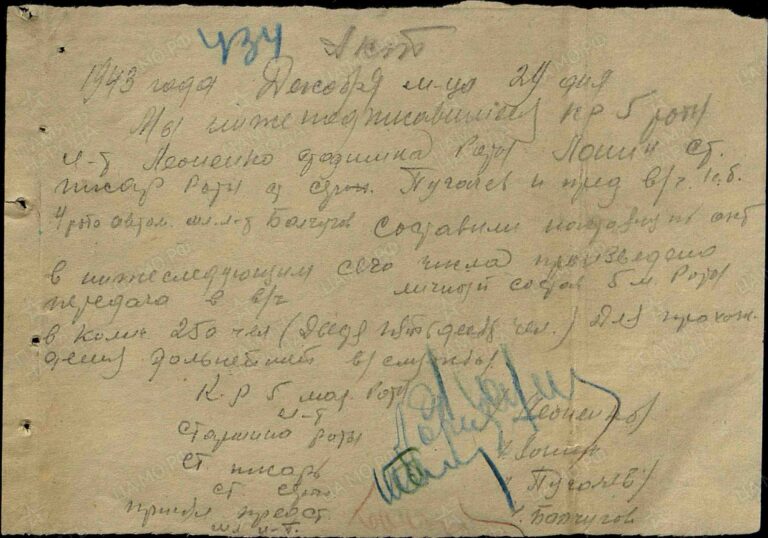 434 Акт
1943 года Декабря м-ца 24 дня
Мы нижеподписавшиеся К-Р 5 роты
л-т Леоненко старшина Роты Лонин ст.
писар Роты ст серж. Пугачев и пред в/ч
4 рота автом. мл. л-т Балчугов составили настоящий акт
в нижеследующим сего числа произведено
передача в в/ч личный состав 5 м. Роты
в колич 250 чел (Двести пятьдесят чел.) Для прохож-
дения дальнейшей в/службы.
К-Р 5 мар. Роты
л-т Леоненко/
Старшина роты /Лонин
ст писарь
ст серж /Пугачев/
принял предст
мл л-т. /Балчугов